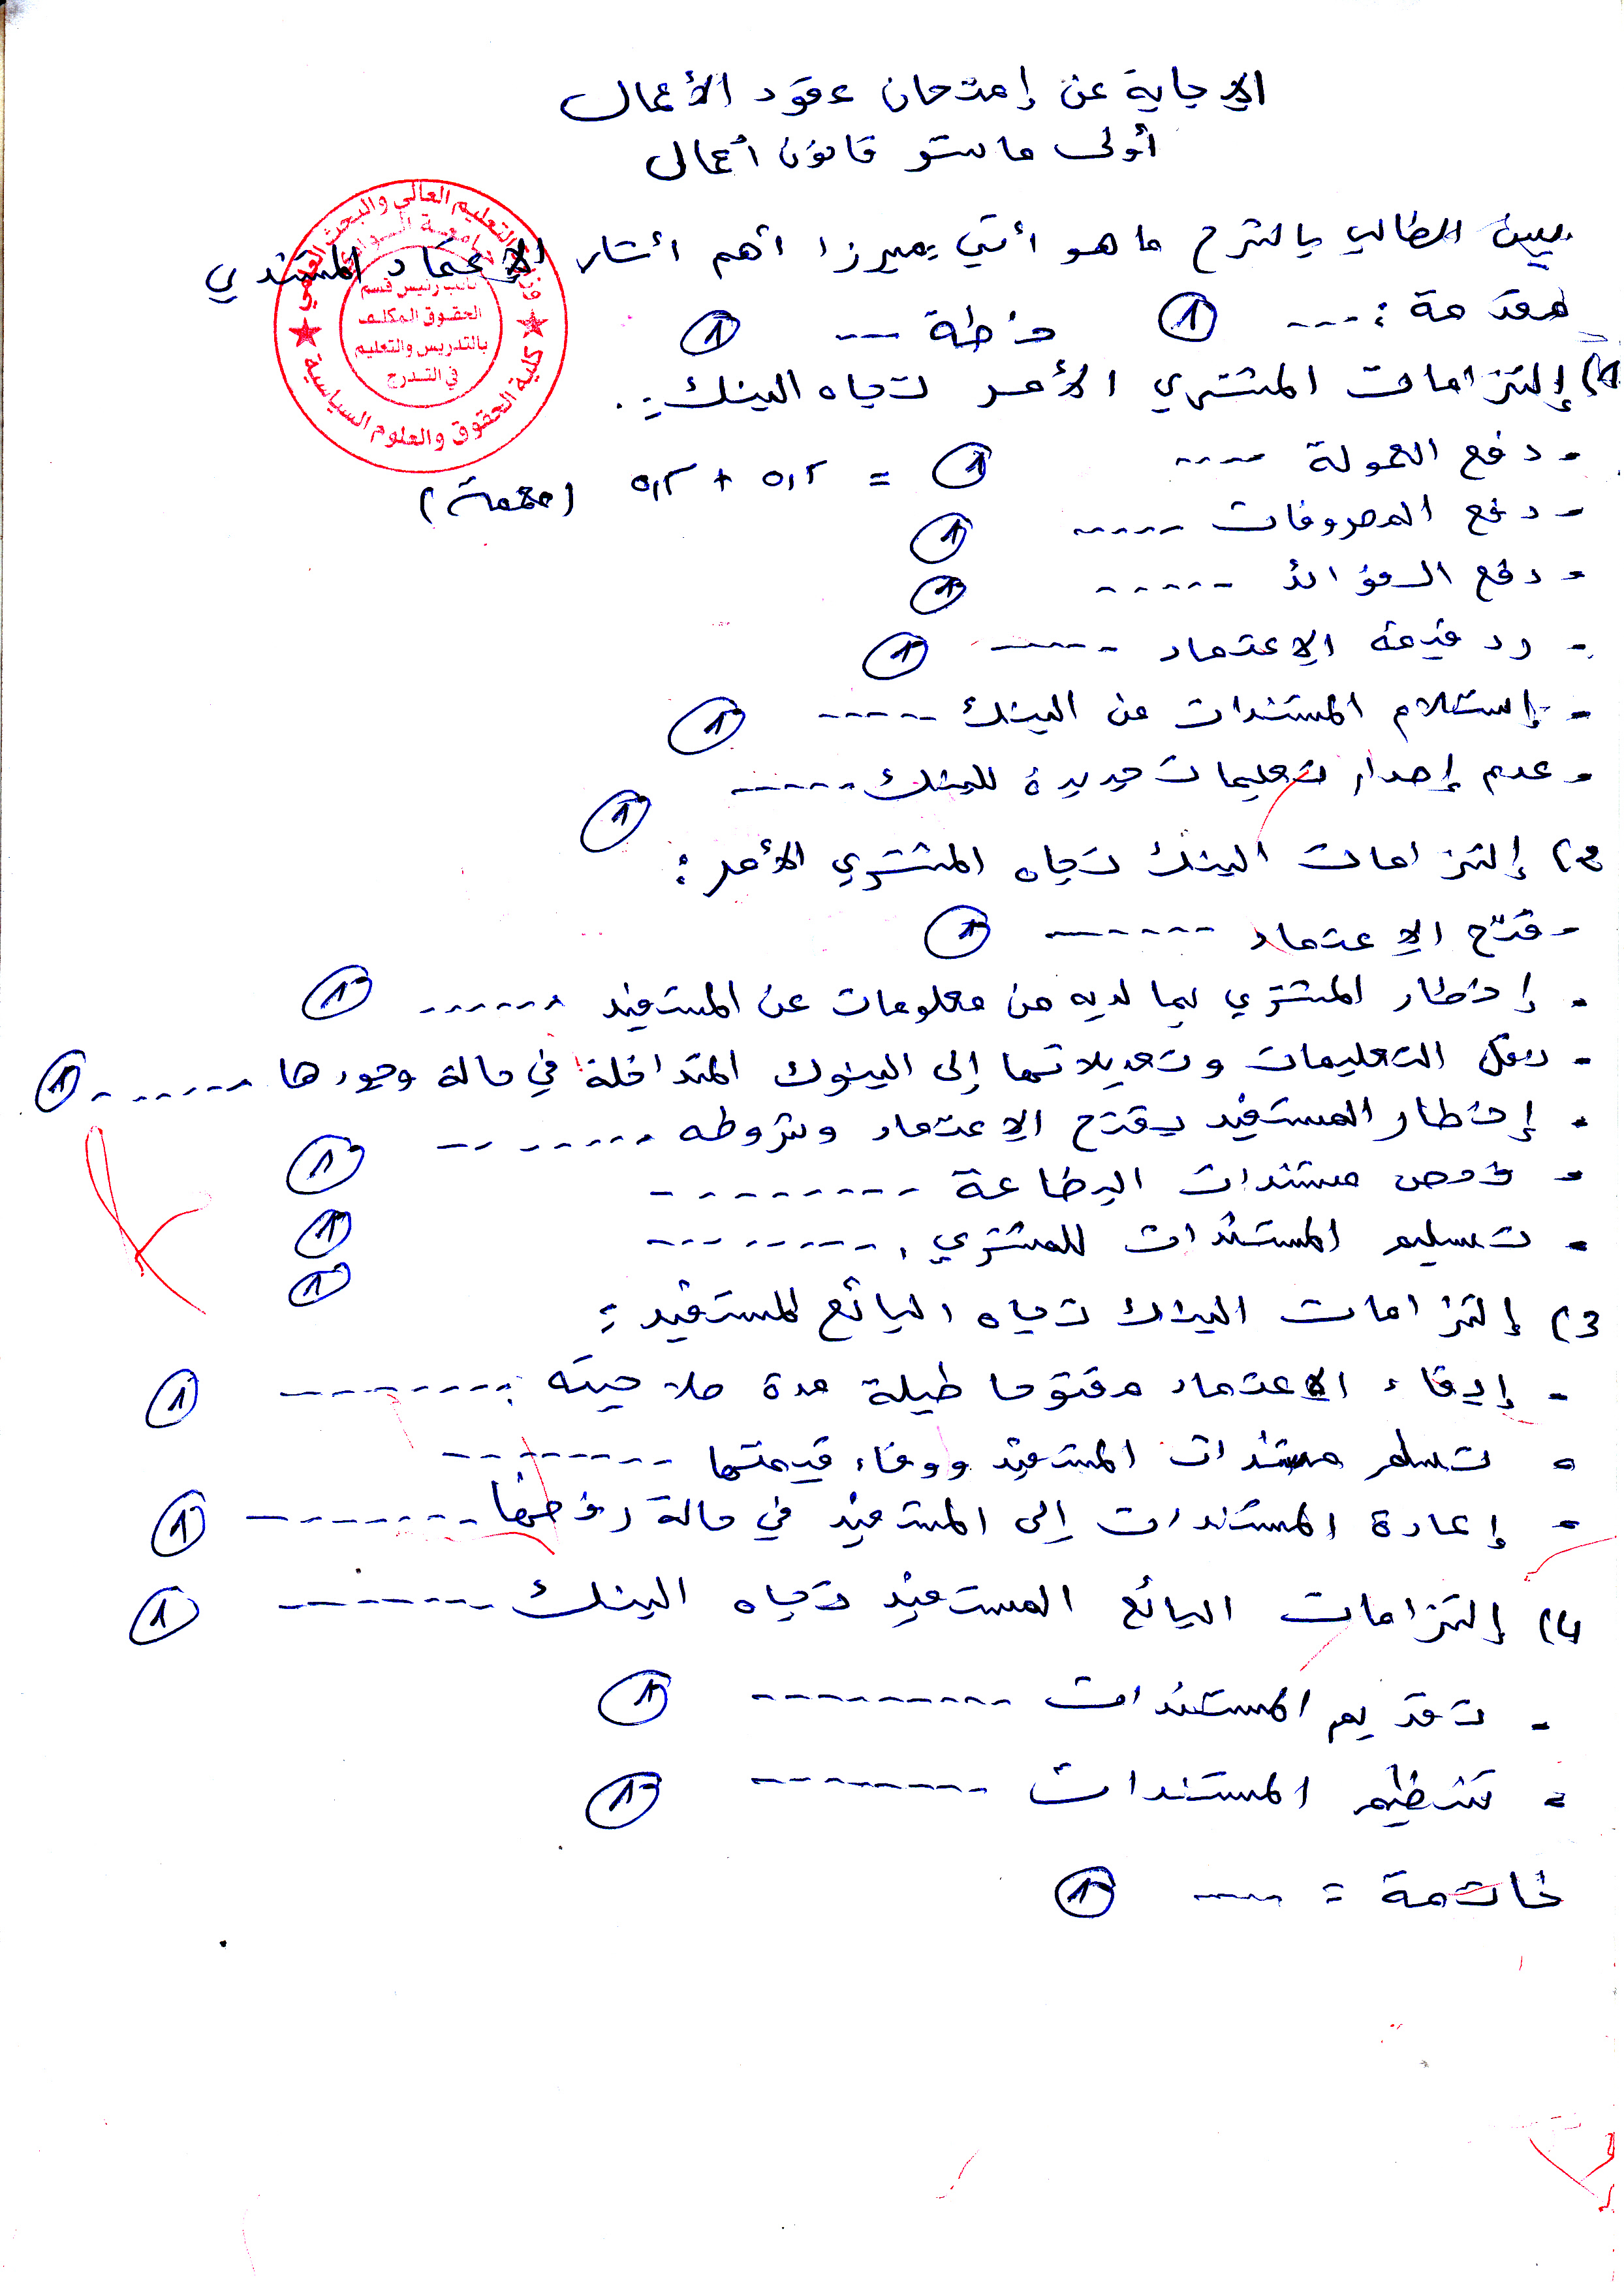 الإجابة عن إمتحان عقود الأعمال
أولى ماستر قانون أعمال
يبين الطالب بالشرح ما هو أتي مبرزا أهم أثار الإعتماد المستندي
مقدمة : --- 1 خطة --- 1
1) إلتزامات المشتري الأمر تجاه البنك :
- دفع العمولة ---- 1 = 0,5 + 0,5
- دفع المصروفات ----- 1
- دفع الفوائد ----- 1
- رد قيمة الإعتماد ----- 1
- إستلام المستندات من البنك ----- 1
- عدم إصدار تعليمات جديدة للبنك ----- 1
2) إلتزامات البنك تجاه المشتري الأمر :
- فتح الإعتماد ------ 1
- إخطار المشتري بما لديه من معلومات عن المستفيد ------ 1
- نقل التعليمات وتعديلاتها إلى البنوك المتداخلة في حالة وجودها ------ 1
- إخطار المستفيد بفتح الإعتماد وشروطه ------- 1
- فحص مستندات البضاعة -------- 1
- تسليم المستندات للمشتري . -------- 1
3) إلتزامات البنك تجاه البائع المستفيد :
- إبقاء الإعتماد مفتوحا طيلة مدة صلاحيته -------- 1
- تسلم مستندات المستفيد ووفاء قيمتها --------
- إعادة المستندات إلى المستفيد في حالة رفضها ------- 1
4) إلتزامات البائع المستفيد تجاه البنك ------- 1
- تقديم المستندات --------- 1
- تنظيم المستندات -------- 1
خاتمة : ---- 1
وزارة التعليم العالي والبحث العلمي
جامعة الوادي
نائب رئيس قسم
الحقوق المكلف
بالتدريس والتعليم
في التدرج
كلية الحقوق والعلوم السياسية